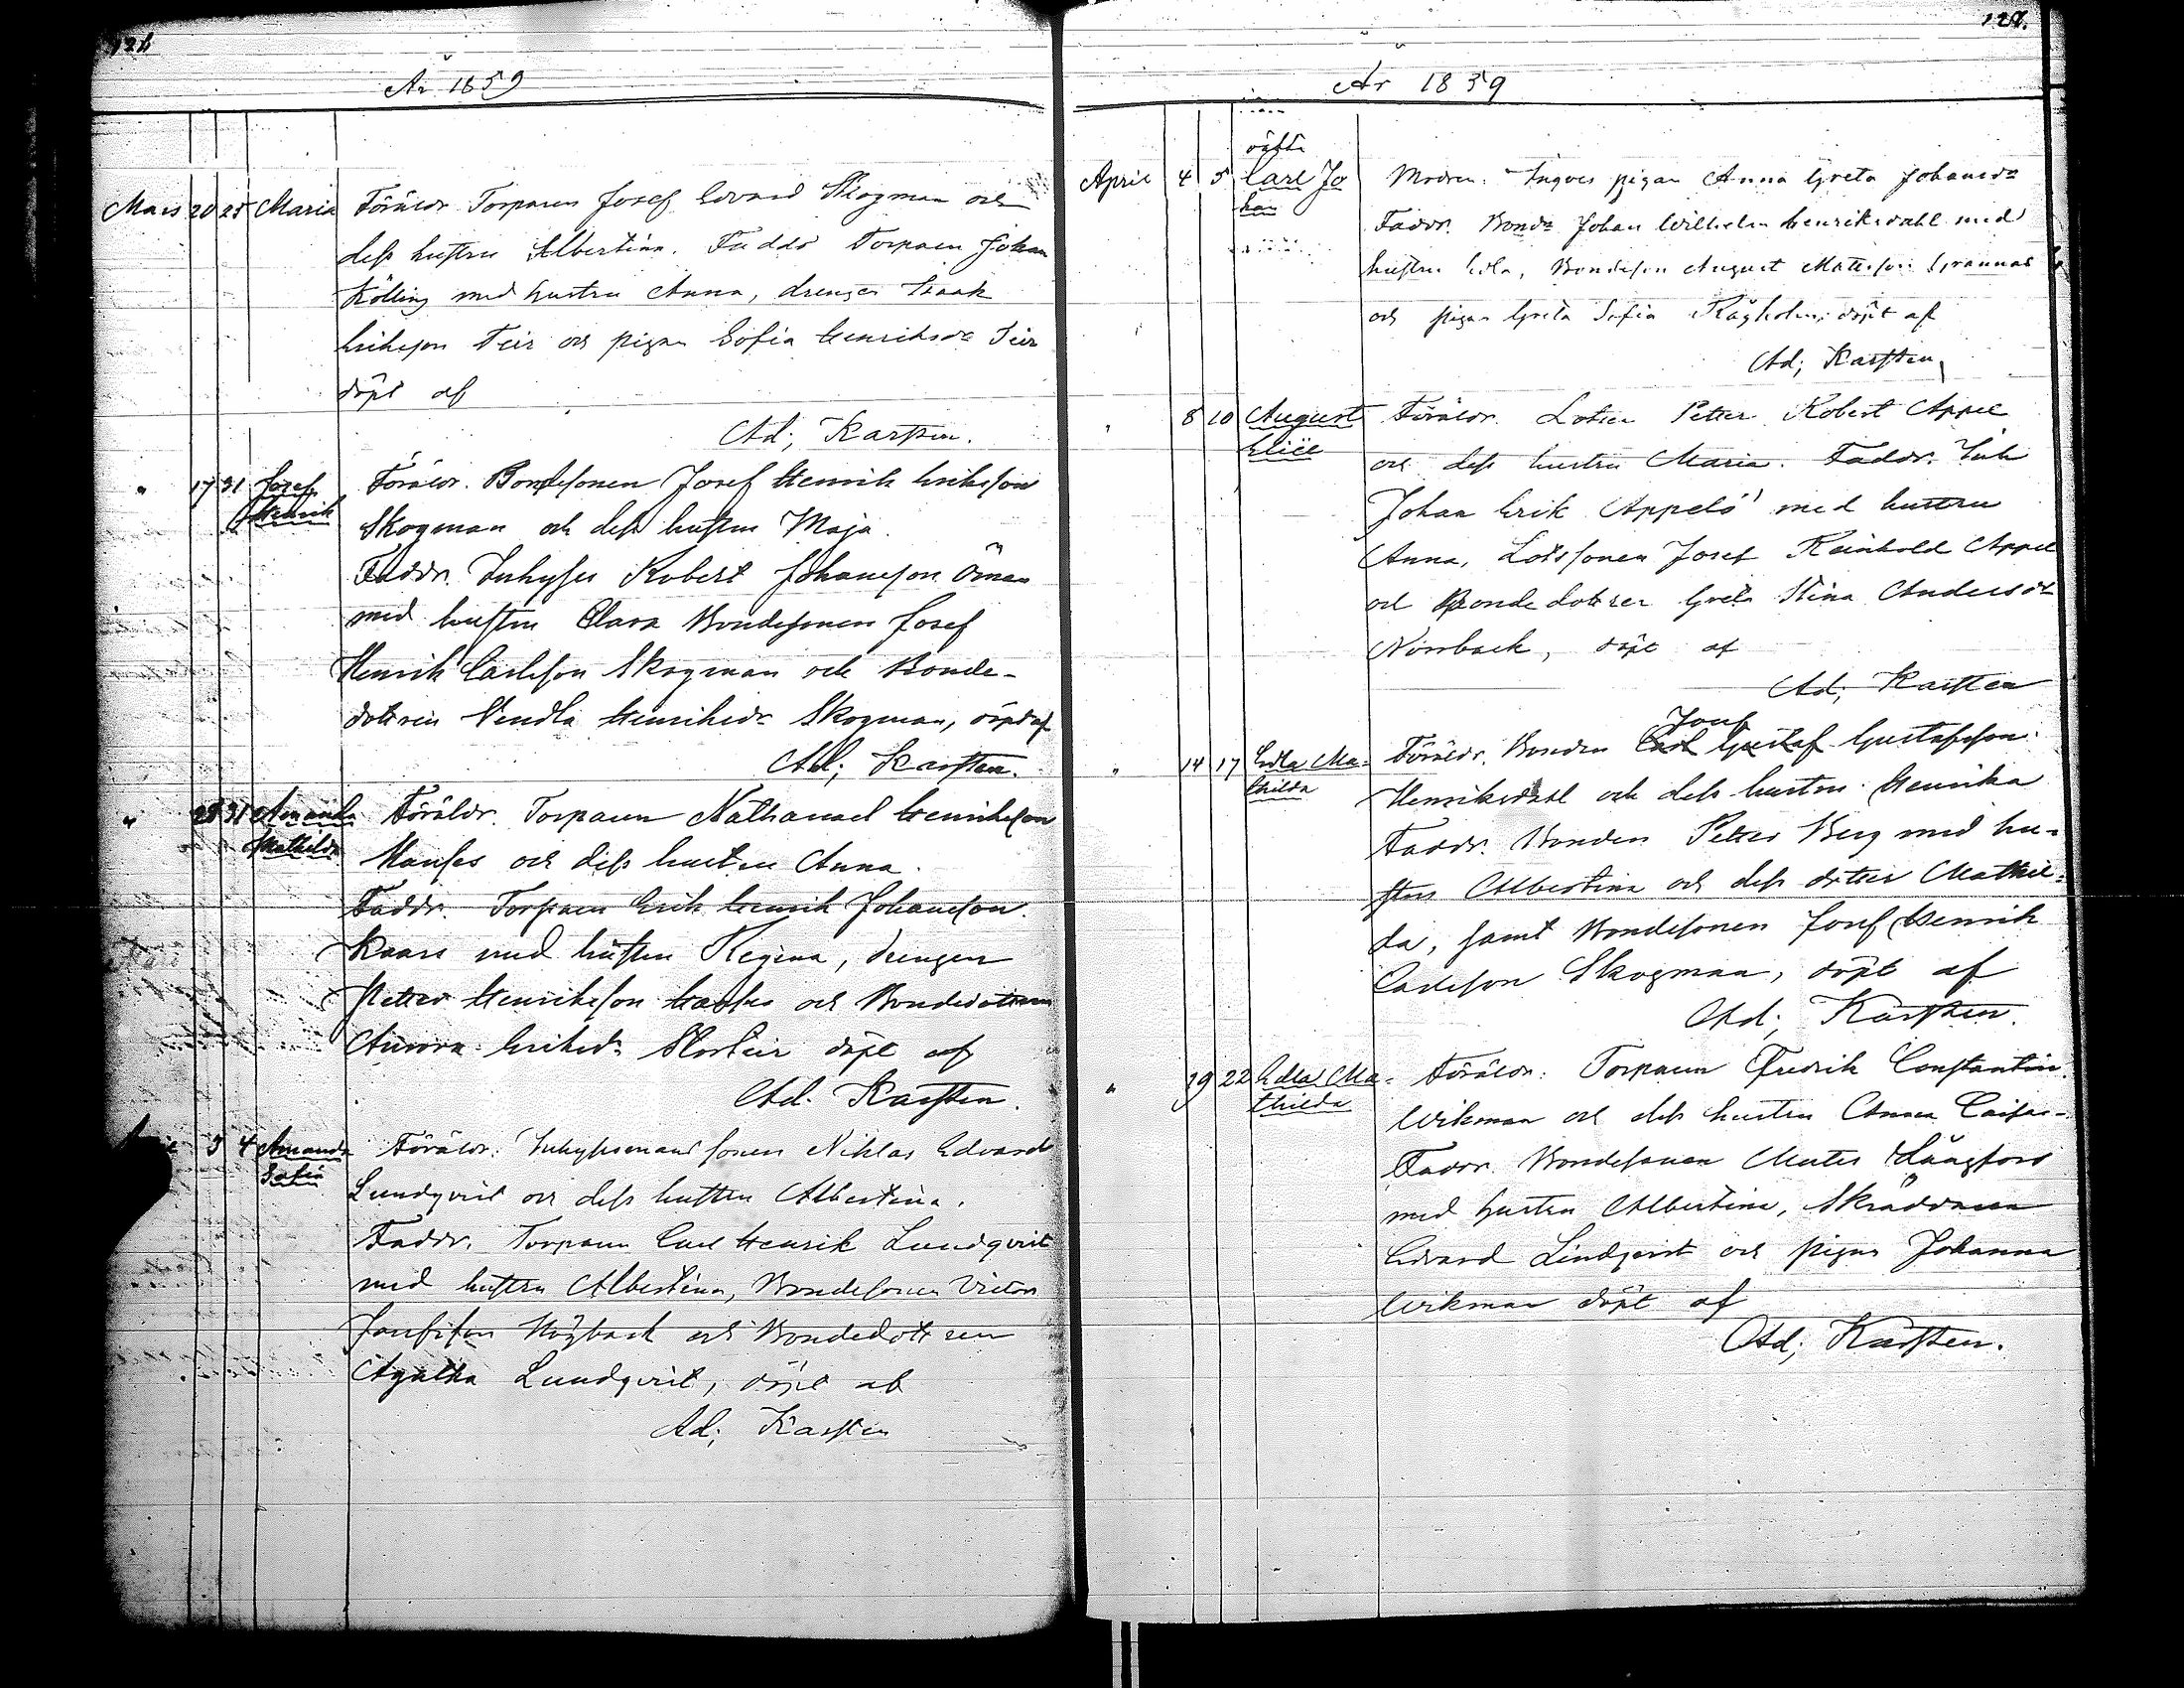 År 1859
Mars 20 25 Maria Föräldr Torparen Josef Edvard Skogman och
dess hustru Albertina. Faddr Torparen Johan
Kölling med hustru Anna, drengen Isaak
Eriksson Teir och pigan Sofia Henriksdr Teir
döpt af
Ad; Karsten.
" 17 31 Josef Föräldr. Bondesonen Josef Henrik Eriksson
Henrik Skogman och dess hustru Maja.
Faddr. Inhyses Robert Johansson Öman
med hustru Clara Bondesonen Josef
Henrik Carlsson Skogman och Bonde-
dottren Vendla Henriksdr Skogman, döpt af
Ad; Karsten.
" 28 31 Amanda Föräldr. Torparen Nathanael Henriksson
Mathilda och dess hustru Anna.
Faddr. Torparen Erik Henrik Johansson
Kaars med hustru Regina, drengen
Petter Henriksson och Bondedottren
Aurora Eriksdr Storteir döpt af
Ad. Karsten.
3 4 Amanda Föräldr. Inhysesmans sonen Niklas Edvard
Sofia Lundqvist och dess hustru Albertina.
Faddr. Torparen Carl Henrik Lundqvist
med hustru Albertina, Bondesonen Victor
Josefsson Högback och Bondedottren
Agatha Lundqvist, döpt af
Ad; Karsten
128.
År 1859
oäkta
April 4 5 Carl Jo Modren. Ingves pigan Anna Greta Johansdr
han Faddr. Bond: Johan Wilhelm Henriksdahl med
hustru Edla, Bondeson August Mattsson Grannas
och pigan Greta Sofia Rågholm; döpt af
Ad; Karsten
" 8 10 August Föräldr. Lotsen Petter Robert Appel
Eliel och dess hustru Maria. Faddr. Inh
Johan Erik Appelö med hustru
Anna, Lotssonen Josef Reinhold Appel
och Bondedottren Greta Stina Andersdr
Norrback, döpt af
Ad; Karsten
Josef
" 14 17 Edla Ma- Föräldr. Bonden Carl Gustaf Gustafsson
thilda Henriksdahl och dess hustru Henrika
Faddr. Bonden Petter Berg med hu-
stru Albertina och dess dotter Mathil-
da, samt Bondesonen Josef Henrik
Carlsson Skogman, döpt af
Ad; Karsten.
" 19 22 Edla Ma- Föräldr: Torparen Fredrik Constantin
thilda Wikman och dess hustru Anna Caisa.
Faddr. Bondesonen Matts Långfors
med hustru Albertina, Skräddaren
Edvard Lindqvist och pigan Johanna
Wikman döpt af
Ad; Karsten.